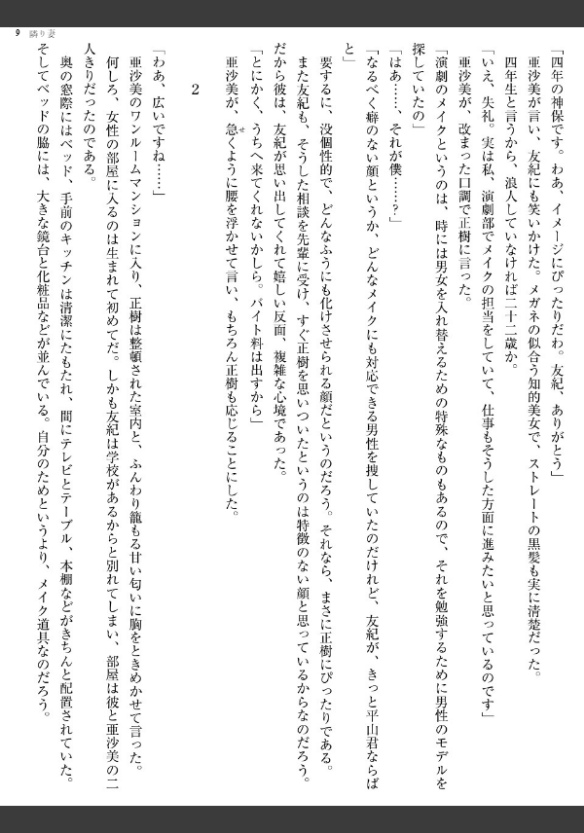 9 隣り妻
「四年の神保です。わあ、イメージにぴったりだわ。友紀、ありがとう」
亜沙美が言い、友紀にも笑いかけた。メガネの似合う知的美女で、ストレートの黒髪も実に清楚だった。
四年生と言うから、浪人していなければ二十二歳か。
「いえ、失礼。実は私、演劇部でメイクの担当をしていて、仕事もそうした方面に進みたいと思っているのです」
亜沙美が、改まった口調で正樹に言った。
「演劇のメイクというのは、時には男女を入れ替えるための特殊なものもあるので、それを勉強するために男性のモデルを
探していたの」
「はあ……、それが僕……？」
「なるべく癖のない顔というか、どんなメイクにも対応できる男性を捜していたのだけれど、友紀が、きっと平山君ならば
と」
要するに、没個性的で、どんなふうにも化けさせられる顔だというのだろう。それなら、まさに正樹にぴったりである。
また友紀も、そうした相談を先輩に受け、すぐ正樹を思いついたというのは特徴のない顔と思っているからなのだろう。
だから彼は、友紀が思い出してくれて嬉しい反面、複雑な心境であった。
「とにかく、うちへ来てくれないかしら。バイト料は出すから」
亜沙美が、急くように腰を浮かせて言い、もちろん正樹も応じることにした。
2
「わあ、広いですね……」
亜沙美のワンルームマンションに入り、正樹は整頓された室内と、ふんわり籠もる甘い匂いに胸をときめかせて言った。
何しろ、女性の部屋に入るのは生まれて初めてだ。しかも友紀は学校があるからと別れてしまい、部屋は彼と亜沙美の二
人きりだったのである。
奥の窓際にはベッド、手前のキッチンは清潔にたもたれ、間にテレビとテーブル、本棚などがきちんと配置されていた。
そしてベッドの脇には、大きな鏡台と化粧品などが並んでいる。自分のためというより、メイク道具なのだろう。